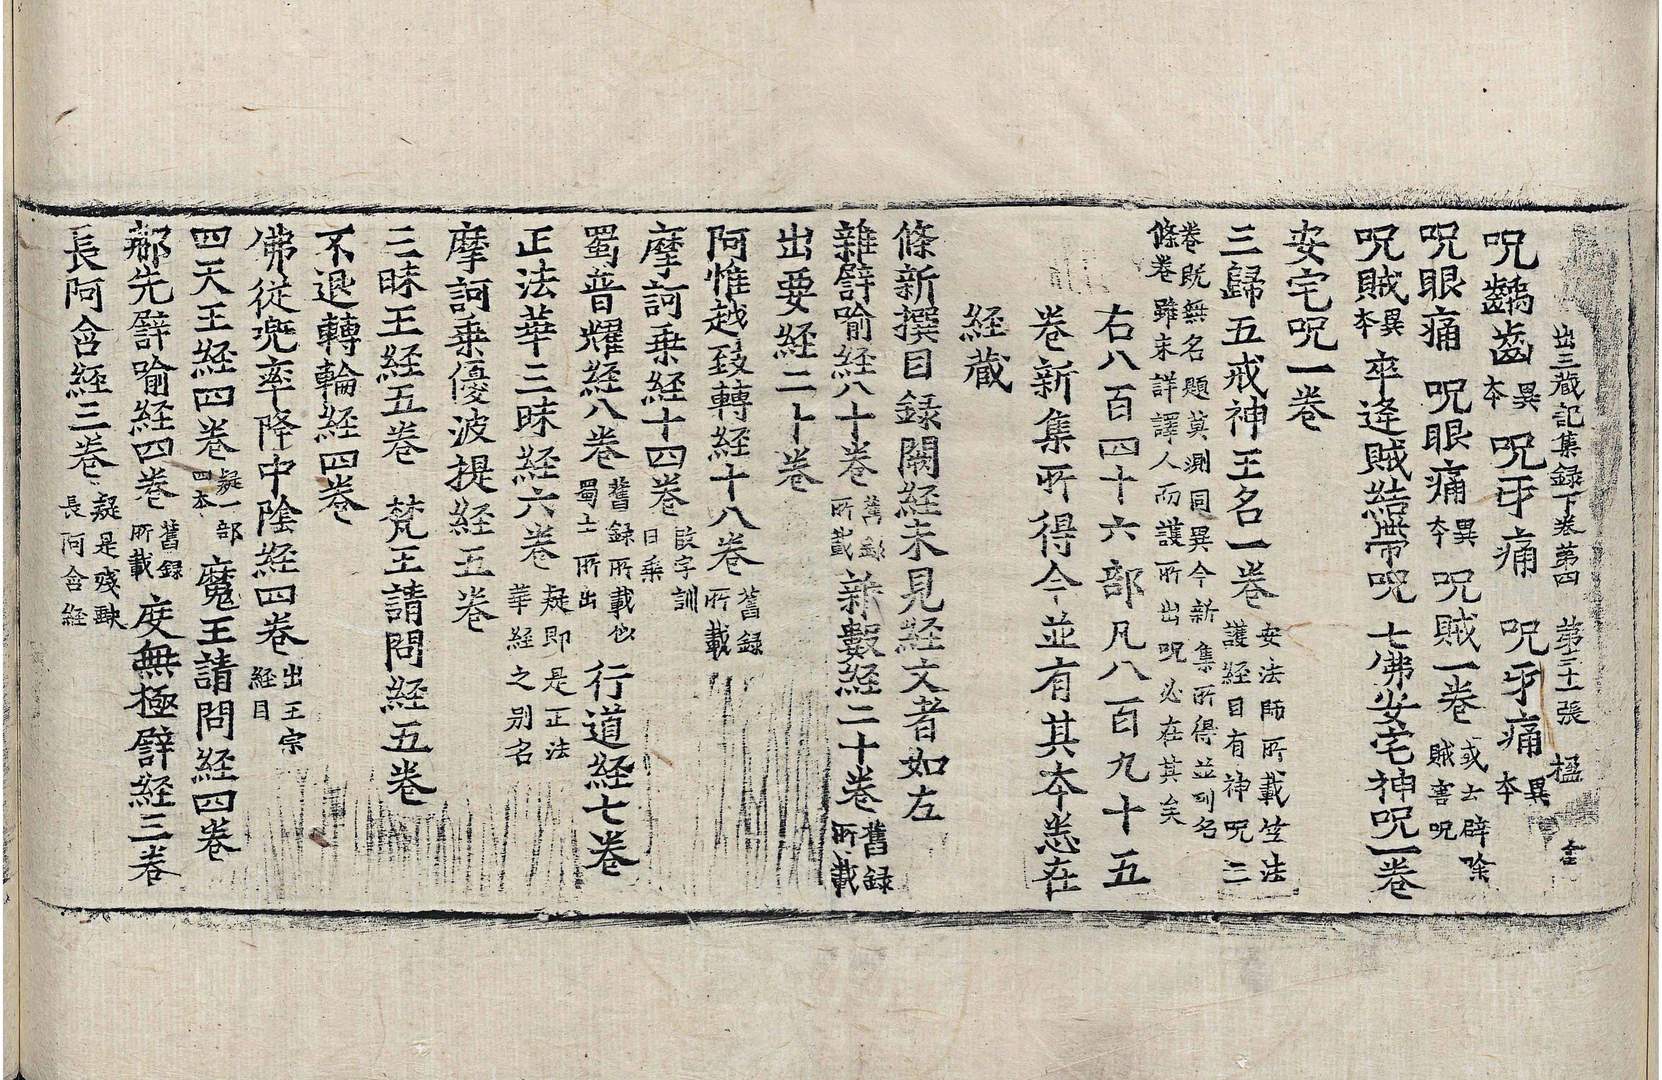 出三藏記集録下卷第四 第三十一張 楹
呪齲齒異本 呪牙痛 呪牙痛異本
呪眼痛 呪眼痛異本 呪賊一卷或云辟除賊害呪
呪賊異本 卒逢賊結帶呪 七佛安宅神呪一卷
安宅呪一卷
三歸五戒神王名一卷安法師所載竺法護経目有神呪三
卷既無名題莫測同異今新集所得並列名條卷雖未詳譯人而護所出呪必在其矣
右八百四十六部凡八百九十五
卷新集所得今並有其本悉在
経藏
條新撰目録闕経未見経文者如左
雜譬喻経八十卷舊録所載 新數経二十卷舊録所載
出要経二十卷
阿惟越致轉経十八卷舊録所載
摩訶乗経十四卷改字訓曰乗
蜀普耀経八卷舊録所載似蜀土所出 行道経七卷
正法華三昧経六卷疑即是正法華経之别名
摩訶乗優波提経五卷
三昧王経五卷 梵王請問経五卷
不退轉輪経四卷
佛從兜率降中陰経四卷出王宗経目
四天王経四卷疑一部四本 魔王請問経四卷
那先譬喻経四卷舊録所載 度無極譬経三卷
長阿含経三卷疑是殘缺長阿含経